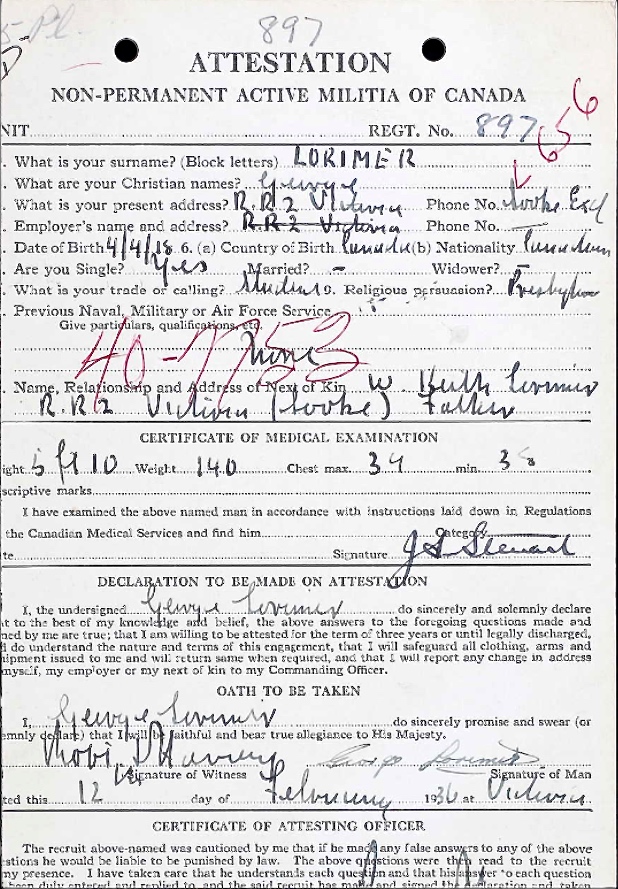 5 Pl.
897
D
ATTESTATION
NON-PERMANENT ACTIVE MILITIA OF CANADA
NIT REGT. No. 897
656
. What is your surname? (Block letters) LORIMER
. What are your Christian names? George
. What is your present address? R.R 2 Victoria Phone No. Sooke
. Employer's name and address? R.R 2 Victoria Phone No. —
Date of Birth 4/4/18 6. (a) Country of Birth Canada (b) Nationality Canadian
. Are you Single? Yes Married? – Widower? –
. What is your trade or calling? Student 9. Religious persuasion?
. Previous Naval, Military or Air Force Service
Give particulars, qualifications, etc.
None
40-7753
Name, Relationship and Address of Next of Kin W. Keith Lorimer
R.R 2 Victoria (Sooke) Father
CERTIFICATE OF MEDICAL EXAMINATION
ight 5 ft 10 Weight 140 Chest max. 34 min.
scriptive marks
I have examined the above named man in accordance with instructions laid down in Regulations
the Canadian Medical Services and find him Category
te Signature J S Stewart
DECLARATION TO BE MADE ON ATTESTATION
I, the undersigned George Lorimer do sincerely and solemnly declare
t to the best of my knowledge and belief, the above answers to the foregoing questions made and
ned by me are true; that I am willing to be attested for the term of three years or until legally discharged,
I do understand the nature and terms of this engagement, that I will safeguard all clothing, arms and
ipment issued to me and will return same when required, and that I will report any change in address
myself, my employer or my next of kin to my Commanding Officer.
OATH TO BE TAKEN
I, George Lorimer do sincerely promise and swear (or
emnly declare) that I will be faithful and bear true allegiance to His Majesty.
George Lorimer
Signature of Witness Signature of Man
ted this 12th day of February 1936 at Victoria
CERTIFICATE OF ATTESTING OFFICER
The recruit above-named was cautioned by me that if he made any false answers to any of the above
stions he would be liable to be punished by law. The above questions were then read to the recruit
my presence. I have taken care that he understands each question and that his answer to each question
been duly entered and replied to, and the said recruit has made and signed the declaration and taken